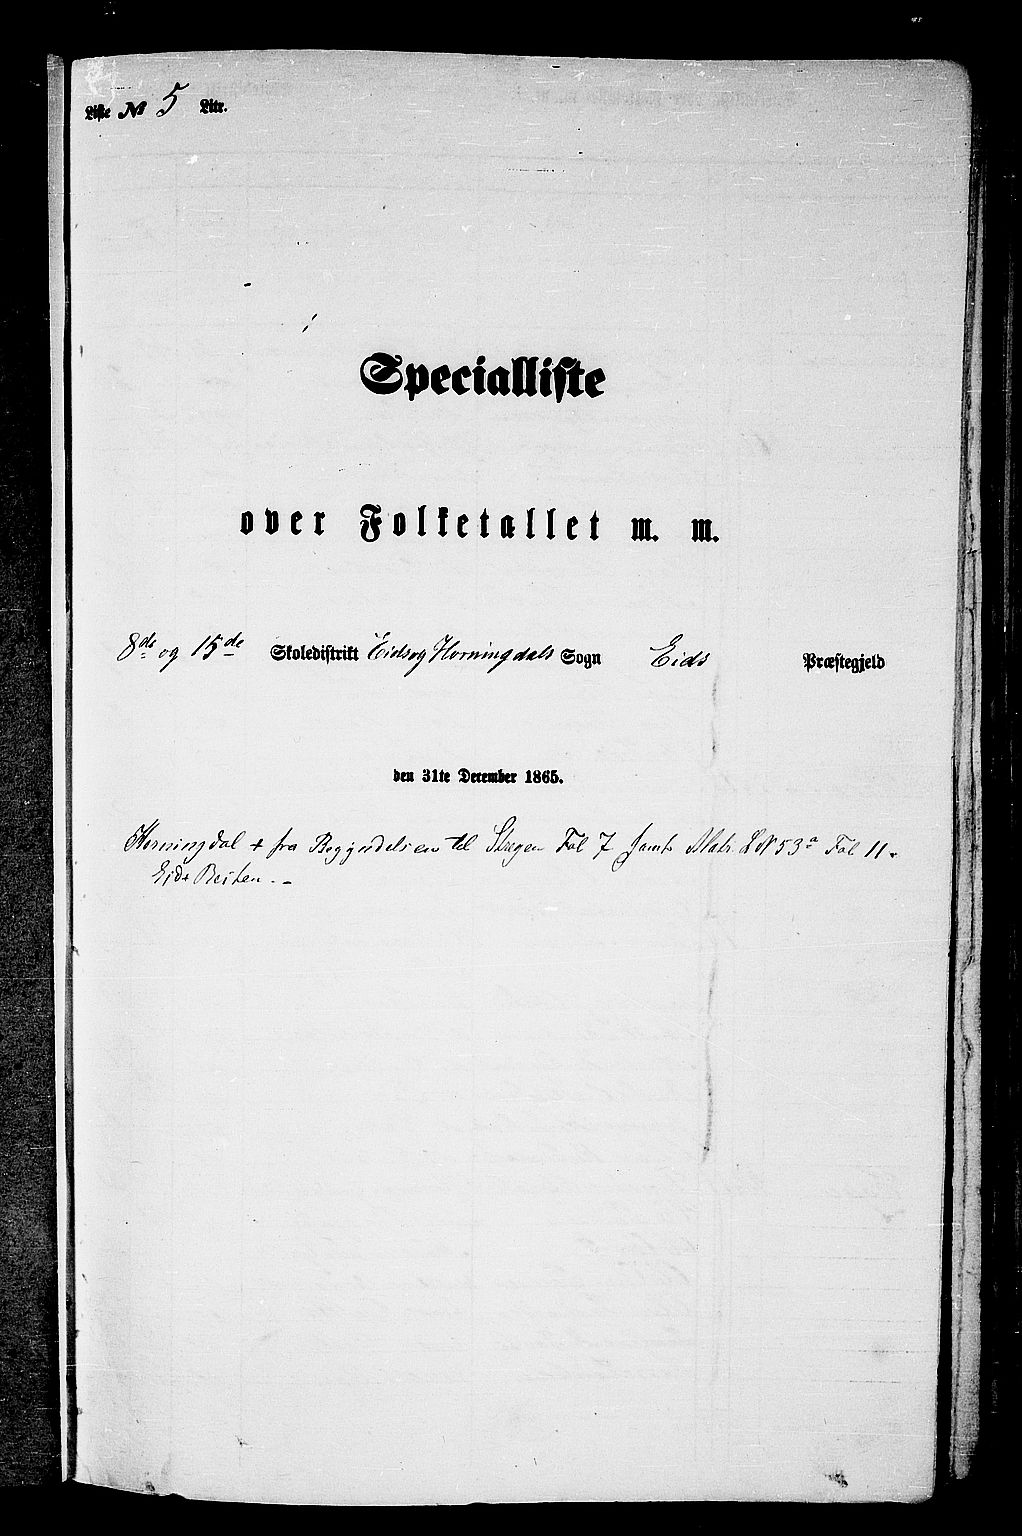 Liste № 5 Litr.
Specialliste
over Folketallet m. m.
8de og 15de Skoledistrikt Eids og Horningdals Sogn Eids Præstegjeld
den 31te December 1865.
Horningdal + fra Begyndelsen til Stregen Fol 7 samt Matr. L N 53a Fol 11.
Eid Resten. -